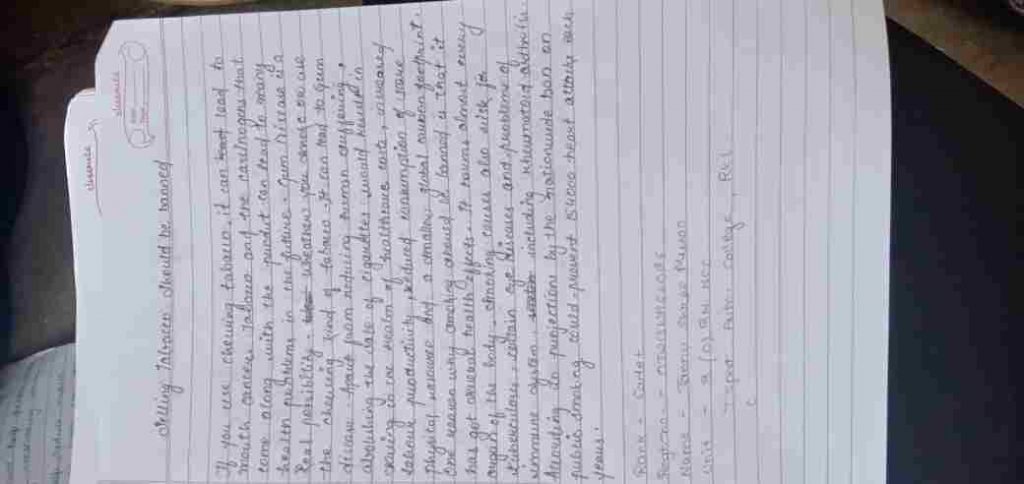 classmate
classmate
Date
Page
Selling Tabacco should be banned
If you use chewing tabacco, it can lead to
mouth cancer. Tabacco and the carcinogens that
come along with the product can lead to many
health problems in the future. Gum disease is a
Real possibility. wheather you smoke or use
the chewing kind of tabacco. It can lead to gum
disease. Apart from reducing human suffering,
abolishing the sale of cigarettes would result in
saving in the realm of healthcare costs, increased
labour productivity, reduced consumption of
physical resources and a smaller global carbon footprint.
One reason why smoking should be banned is that it
has got several health effects. It harms almost every
organ of the body. Smoking causes also risk for
tuberculous, certain eye diseases and problems of
immune system including rheumatoid arthritis.
According to projections by the nationwide ban on
public smoking could prevent 154000 heart attacks each
years.
Rank - Cadet
Name -
Unit - 2 (O) BN NCC
College, Rkl.